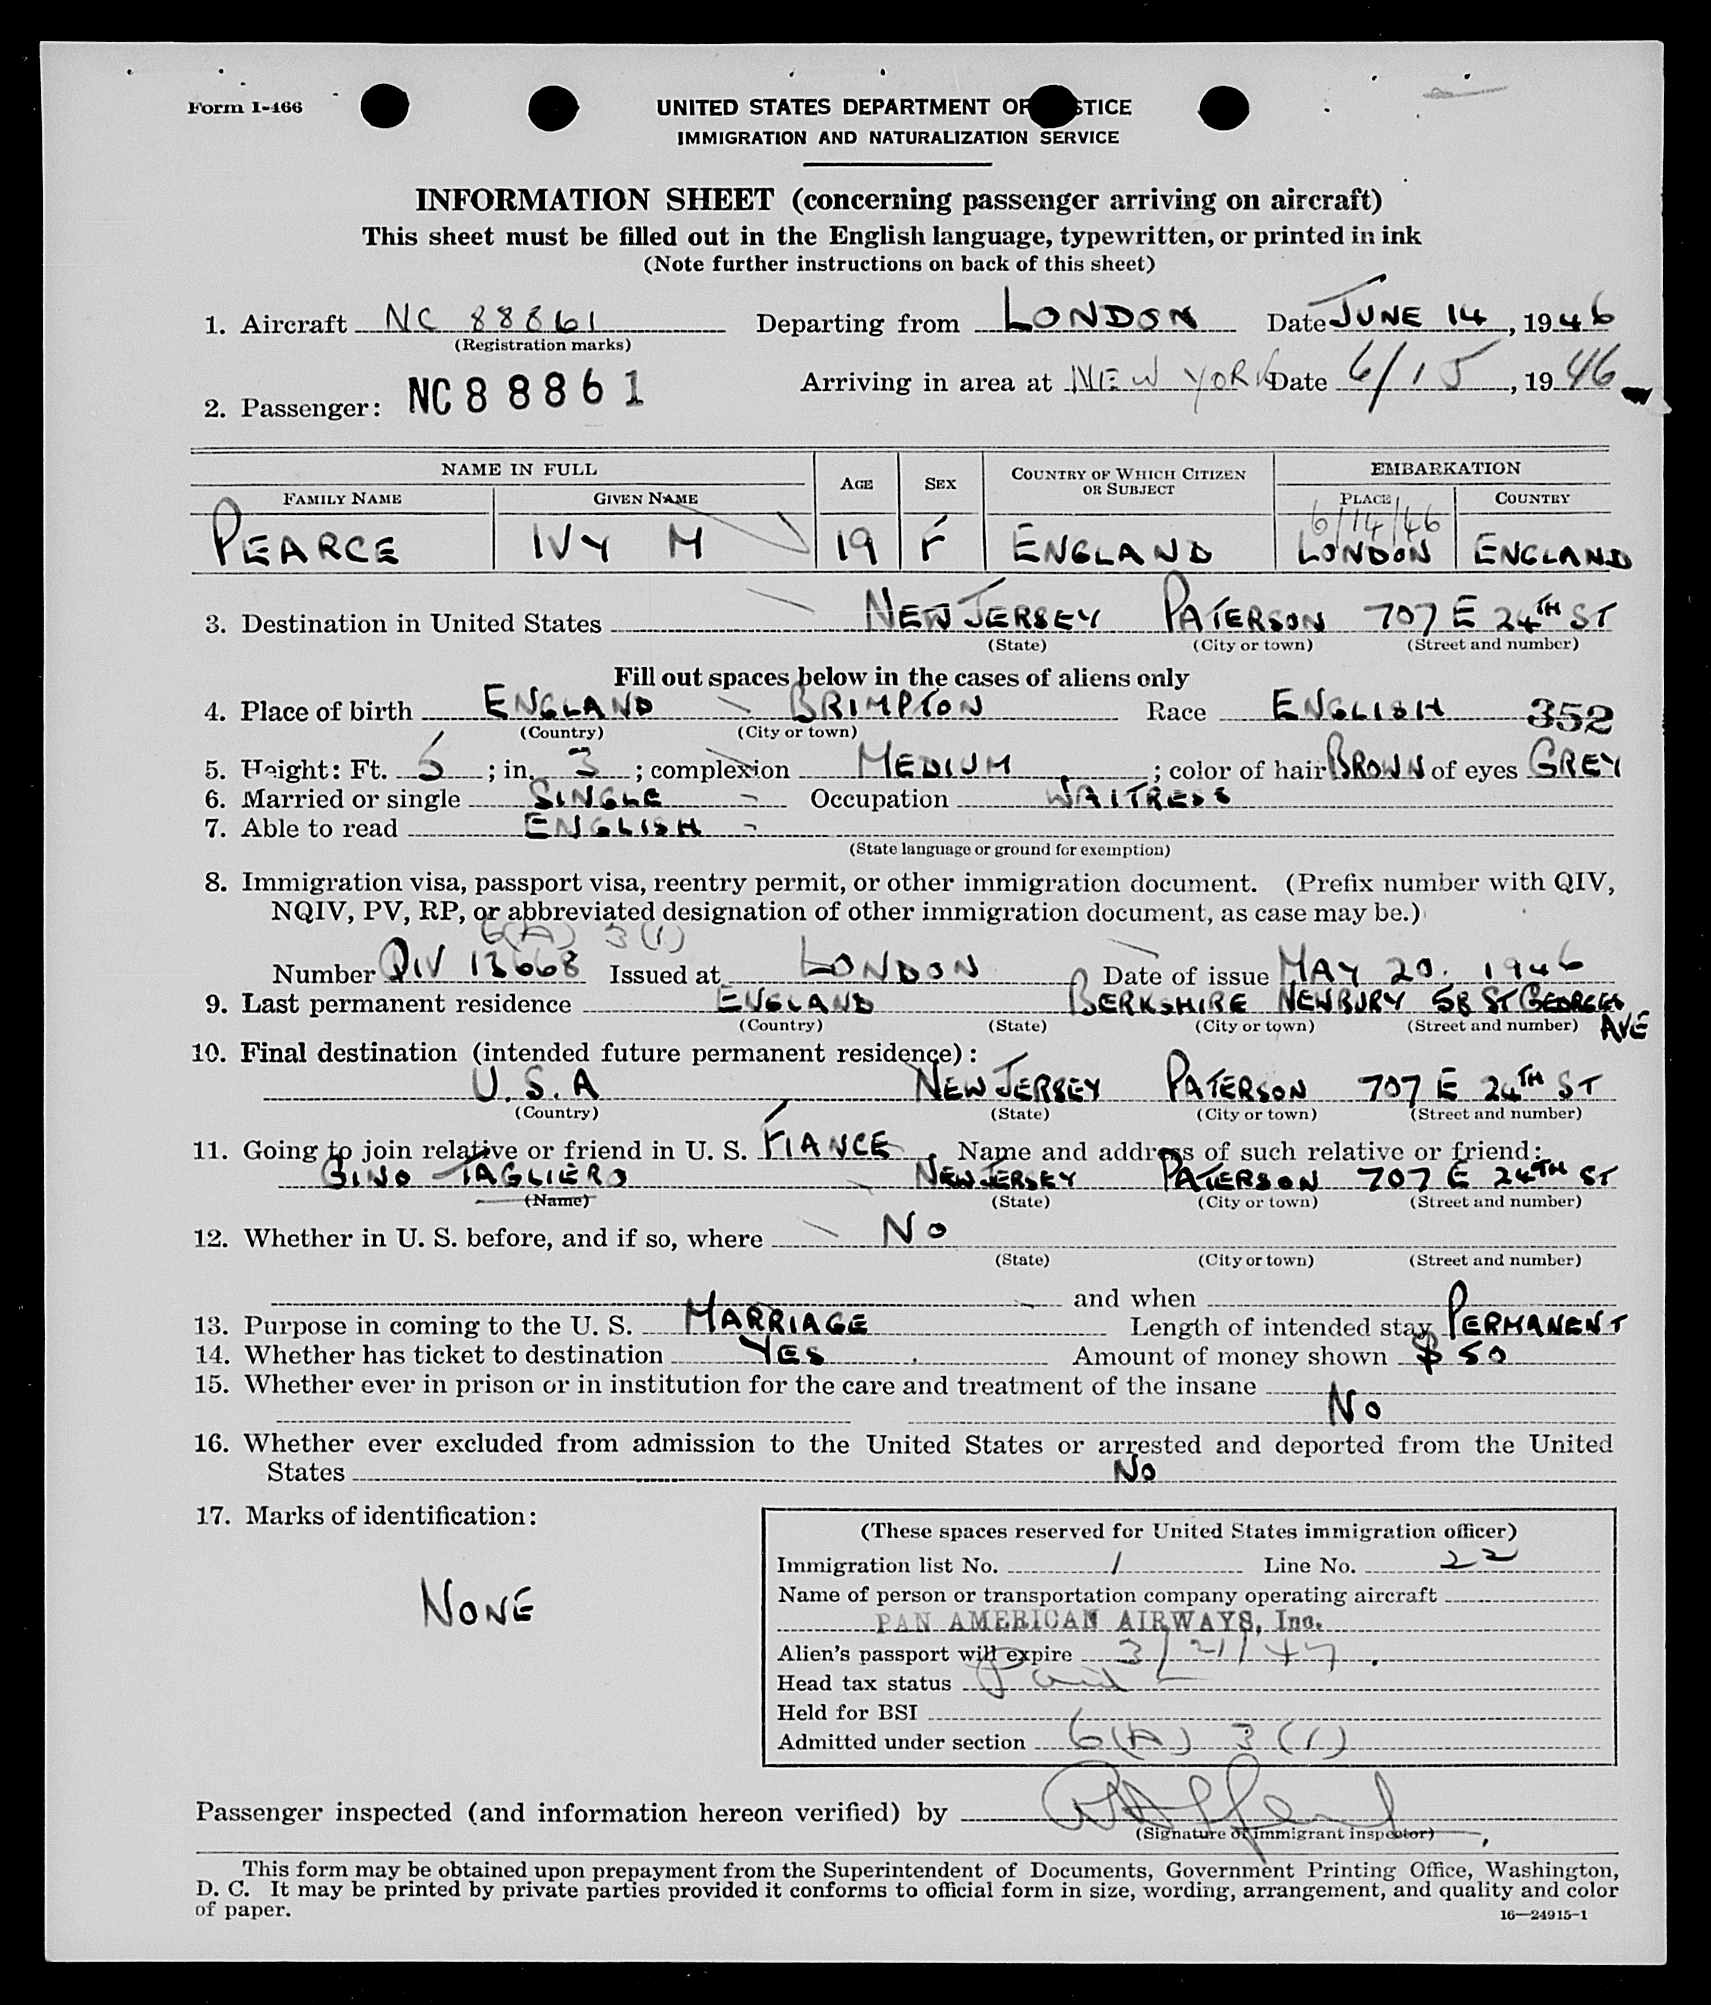 Form I-466
UNITED STATES DEPARTMENT OF STICE
IMMIGRATION AND NATURALIZATION SERVICE
INFORMATION SHEET (concerning passenger arriving on aircraft)
This sheet must be filled out in the English language, typewritten, or printed in ink
(Note further instructions on back of this sheet)
1. Aircraft NC 88861 Departing from LONDON Date JUNE 14, 1946
(Registration marks)
Arriving in area at NEW YORK Date 6/15, 1946
2. Passenger: NC88861
NAME IN FULL AGE SEX COUNTRY OF WHICH CITIZEN OR SUBJECT EMBARKATION
FAMILY NAME GIVEN NAME PLACE COUNTRY
6/14/46
PEARCE IVY M 19 F ENGLAND LONDON ENGLAND
3. Destination in United States NEW JERSEY PATERSON 707 E 24TH ST
(State) (City or town) (Street and number)
Fill out spaces below in the cases of aliens only
4. Place of birth ENGLAND BRIMPTON Race ENGLISH 352
(Country) (City or town)
5. Height: Ft. 5; in. 3; complexion MEDIUM; color of hair BROWN of eyes GREY
6. Married or single SINGLE Occupation WAITRESS
7. Able to read ENGLISH
(State language or ground for exemption)
8. Immigration visa, passport visa, reentry permit, or other immigration document. (Prefix number with QIV,
NQIV, PV, RP, or abbreviated designation of other immigration document, as case may be.)
6(A) 3(1)
Number QIV 13668 Issued at LONDON Date of issue MAY 20. 1946
9. Last permanent residence ENGLAND BERKSHIRE NEWBURY 58 ST GEORGES AVE
(Country) (State) (City or town) (Street and number)
10. Final destination (intended future permanent residence):
U.S.A NEW JERSEY PATERSON 707 E 24TH ST
(Country) (State) (City or town) (Street and number)
11. Going to join relative or friend in U. S. FIANCE. Name and address of such relative or friend:
GINO TAGLIERO NEW JERSEY PATERSON 707 E 24TH ST
(Name) (State) (City or town) (Street and number)
12. Whether in U. S. before, and if so, where NO
(State) (City or town) (Street and number)
and when
13. Purpose in coming to the U. S. MARRIAGE Length of intended stay PERMANENT
14. Whether has ticket to destination YES Amount of money shown $ 50
15. Whether ever in prison or in institution for the care and treatment of the insane
NO
16. Whether ever excluded from admission to the United States or arrested and deported from the United
States NO
17. Marks of identification:
NONE
(These spaces reserved for United States immigration officer)
Immigration list No. 1 Line No. 22
Name of person or transportation company operating aircraft
PAN AMERICAN AIRWAYS, Inc.
Alien's passport will expire 3/21/47.
Head tax status Paid
Held for BSI
Admitted under section 6(A) 3(1)
Passenger inspected (and information hereon verified) by
(Signature of immigrant inspector)
This form may be obtained upon prepayment from the Superintendent of Documents, Government Printing Office, Washington,
D. C. It may be printed by private parties provided it conforms to official form in size, wording, arrangement, and quality and color
of paper.
16—24915-1